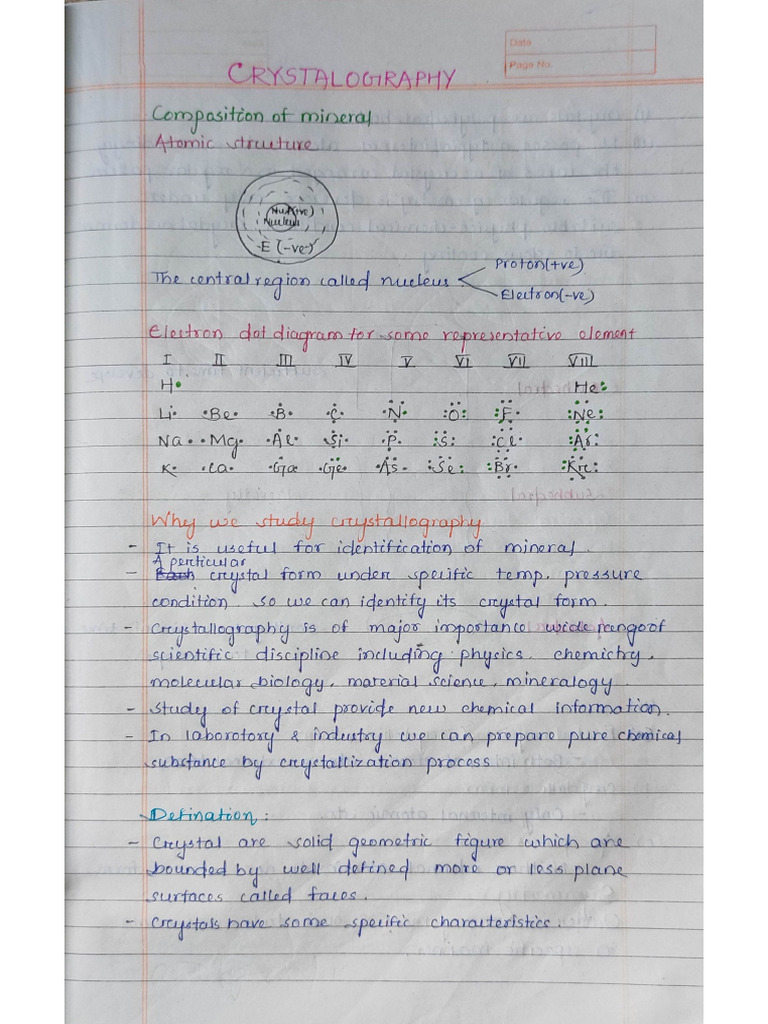 Date
Page No.
CRYSTALOGRAPHY
Composition of mineral
Atomic structure
Nut(+ve)
Nucleus
E (-ve)
The central region called nucleus
Proton(+ve)
Electron(-ve)
Electron dot diagram for some representative element
I II III IV V VI VII VIII
H He
Li Be B C N O F Ne
Na Mg Al Si P S Cl Ar
K Ca Ga Ge As Se Br Kr
Why we study crystallography
- It is useful for identification of mineral.
A perticular
- Each crystal form under specific temp. pressure
condition. so we can identify its crystal form.
- Crystallography is of major importance wide range of
scientific discipline including physics, chemichry,
molecular biology, material science, mineralogy.
- Study of crystal provide new chemical information.
- In laborotory & industry we can prepare pure chemical
substance by crystallization process
Defination:
- Crystal are solid geometric figure which are
bounded by well defined more or less plane
surfaces called faces.
- Crystals have some specific characteristics.